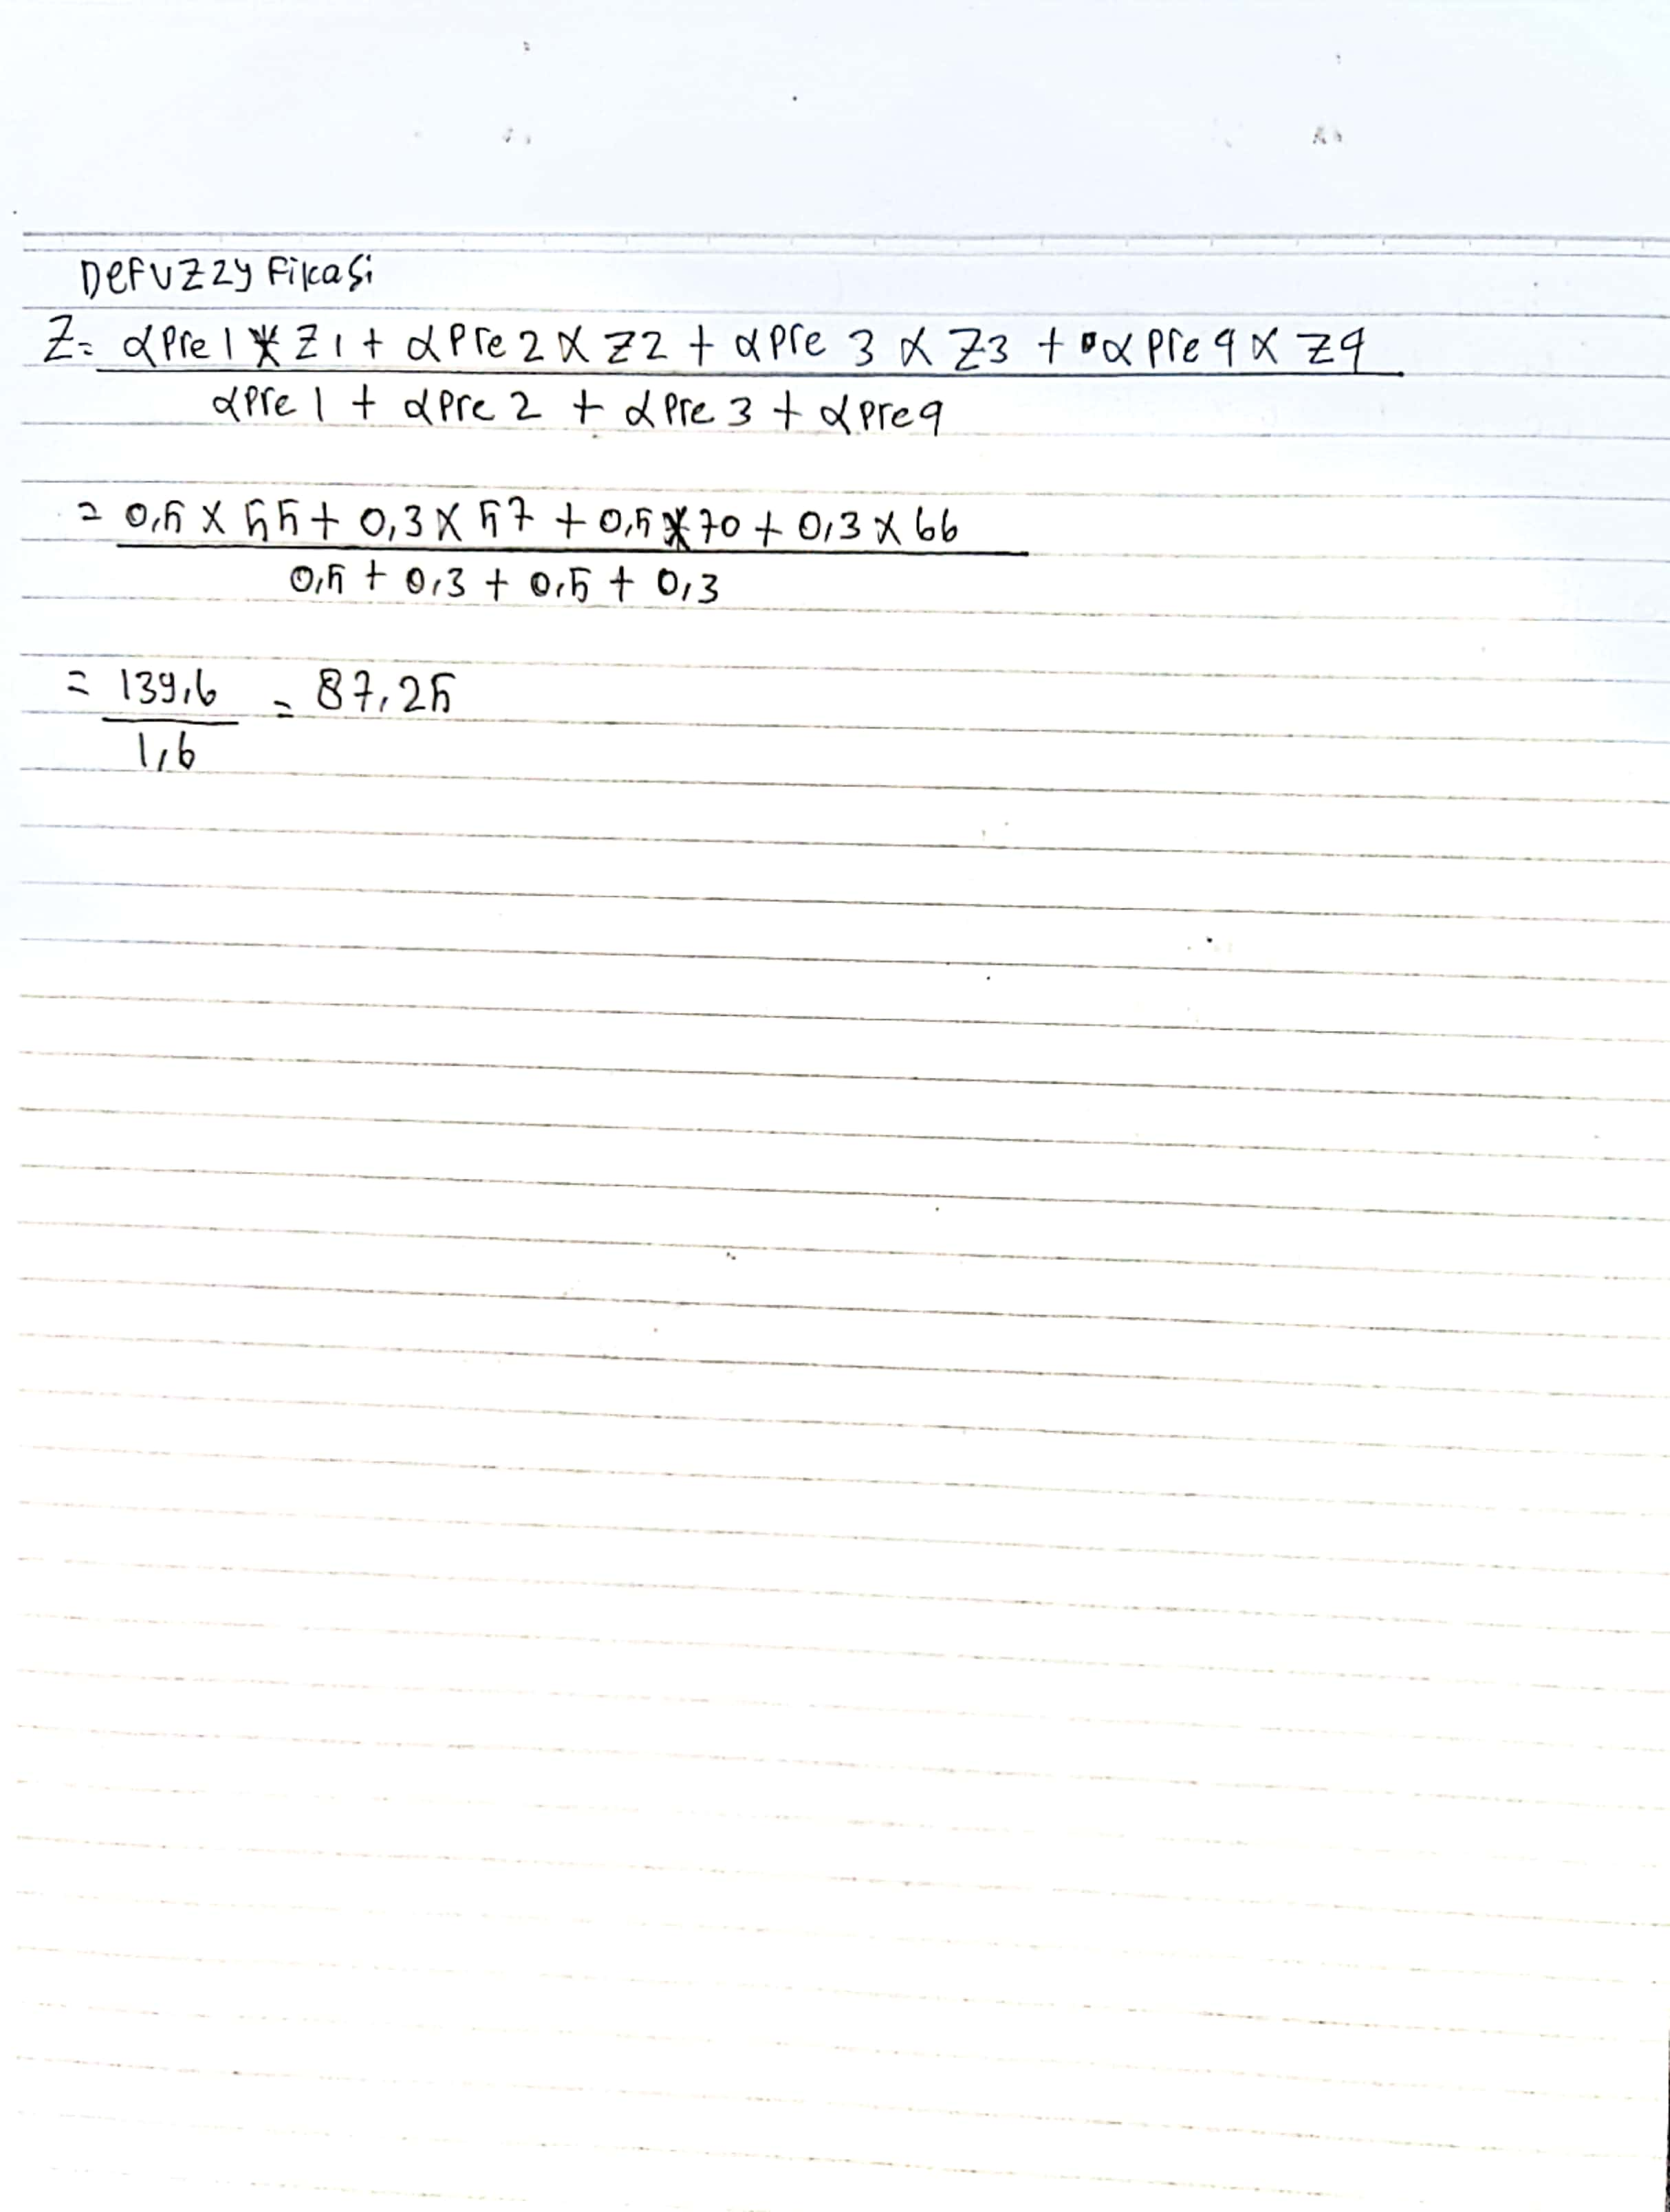 Defuzzyfikasi
Z= αPre1 * Z1 + αPre2 x Z2 + αPre 3 x Z3 + αPre4 x Z4
αPre1 + αPre2 + αPre3 + αPre4
= 0,5 x 55 + 0,3 x 57 + 0,5 x 70 + 0,3 x 66
0,5 + 0,3 + 0,5 + 0,3
= 139,6 = 87,25
1,6